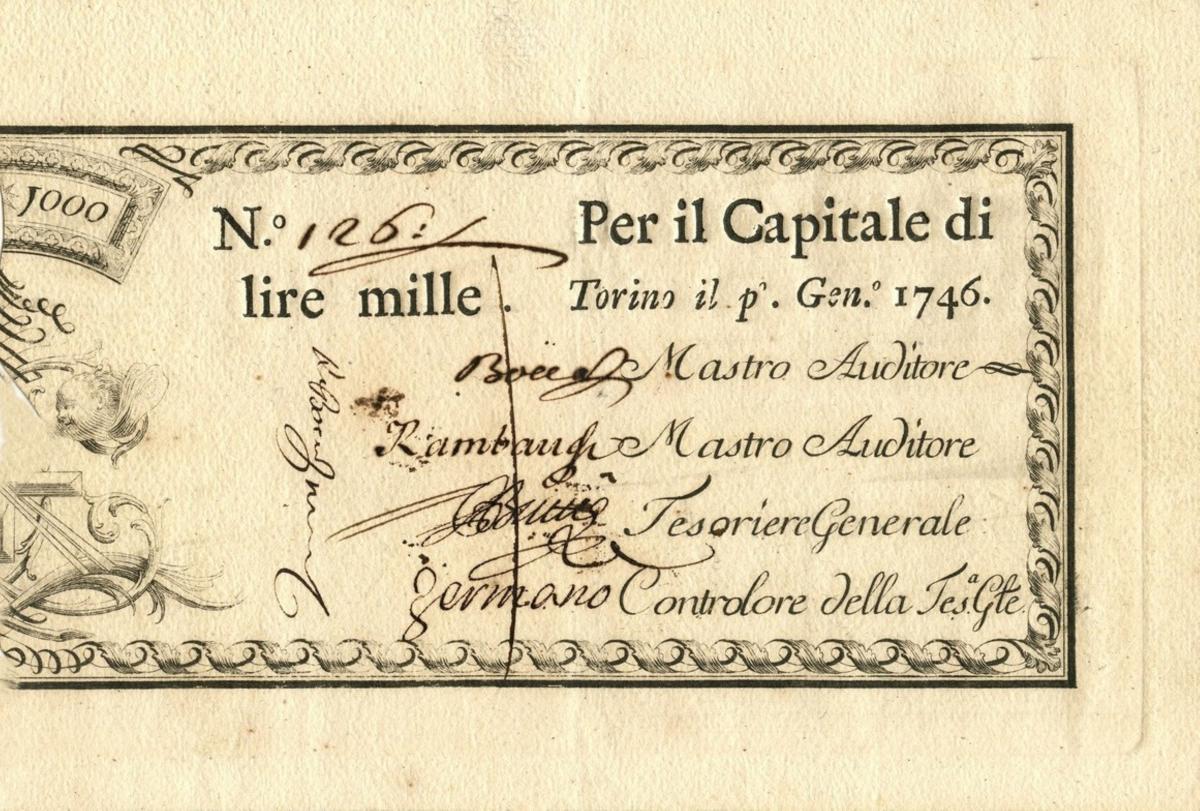 1000
N.º 126: Per il Capitale di
lire mille. Torino il pº. Gen.º 1746.
Mastro Auditore
Rambaudi Mastro Auditore
Bruno Tesoriere Generale
Germano Controlore della Tes.ª Gle.